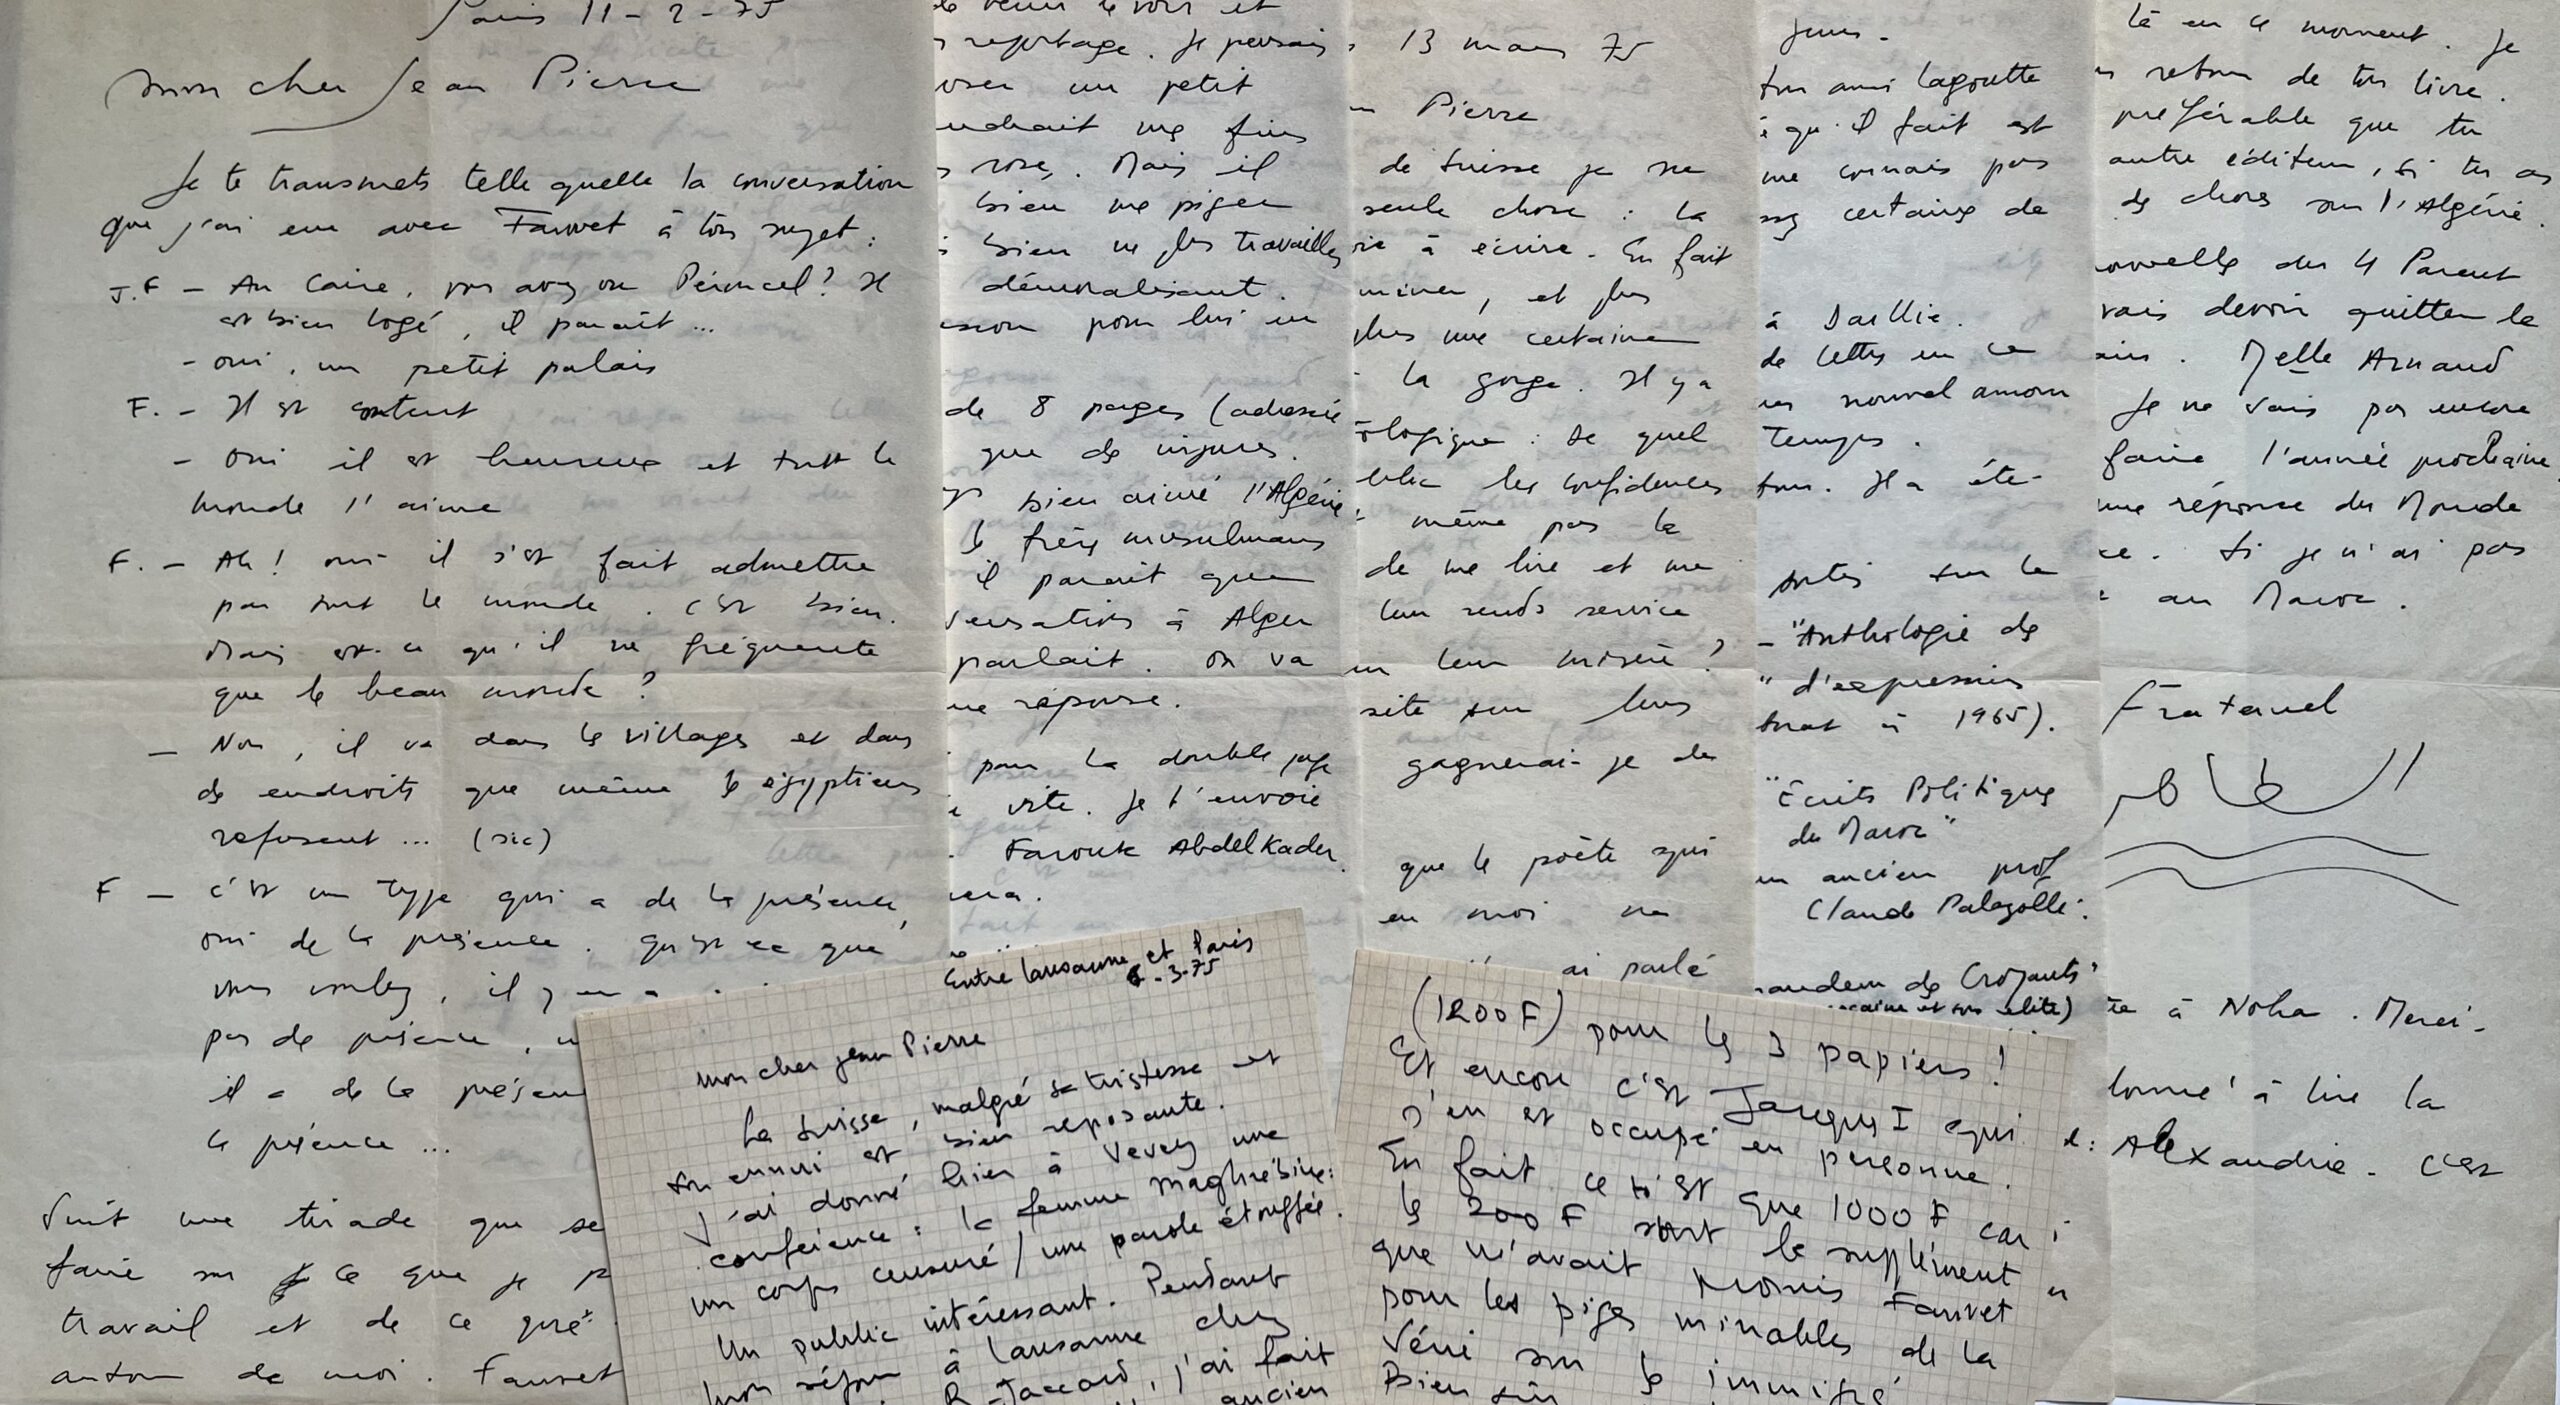 Paris 11-2-75
mon cher Jean Pierre
Je te transmets telle quelle la conversation
que j'ai eue avec Fauvet à ton sujet :
J.F - Au Caire, vous avez vu Péroncel ? Il
est bien logé, il paraît ...
- oui, un petit palais
F. - Il est content
- oui il est heureux et tout le
monde l'aime
F. - Ah ! oui il s'est fait admettre
par tout le monde. c'est bien.
Mais est-ce qu'il ne fréquente
que le beau monde ?
- Non, il va dans les villages et dans
des endroits que même les égyptiens
refusent ... (sic)
F - c'est un type qui a de la présence,
oui de la présence. Qu'est ce que
vous voulez, il y en a
pas de présence,
il a de la présence
la présence ...
Suit une tirade que
faire sur ce que je
travail et de ce que
autour de moi. Fauvet
venir le voir et
reportage. Je pensais
un petit
mes fins
roses. Mais il
bien me piger
bien ne plus travailler
démoralisant.
pour lui
de 8 pages (adressée
que des injures.
bien aimé l'Algérie
les frères musulmans
il paraît que
à Alger
parlait. On va
réponse.
pour la double page
vite. Je t'envoie
Farouk Abdelkader.
13 mars 75
Pierre
de Suisse je ne
seule chose : la
à écrire. En fait
et plus
plus une certaine
la gorge. Il y a
: de quel
les confidences
même pas le
de me lire et me
leur rends service
leur misère ?
sur leurs
gagnerai-je de
que le poète qui
en moi ne
ai parlé
jours.
ton ami Lagoutte
qu'il fait est
me connais pas
certains de
à Dallie.
de lettres en ce
nouvel amour
temps.
Il a été
sur le
- "Anthologie de
" d'expression
à 1965).
"Ecrits Politiques
du Maroc"
un ancien prof
Claude Palazolli.
de Croyants"
et son élite)
là en ce moment. Je
retour de ton livre.
préférable que tu
autre éditeur, si tu as
des choses sur l'Algérie.
nouvelle des 4 Parent
vais devoir quitter le
Melle Arnaud
Je ne sais pas encore
faire l'année prochaine
une réponse du Monde
Si je n'ai pas
au Maroc.
Fraternel
à Noha. Merci.
à lire la
Alexandrie. C'est
Entre Lausanne et Paris
6-3-75
mon cher Jean Pierre
La Suisse, malgré sa tristesse et
son ennui est bien reposante.
J'ai donné hier à Vevey une
conférence : la femme maghrébine :
un corps censuré / une parole étouffée.
Un public intéressant. Pendant
mon séjour à Lausanne chez
R. Jaccard, j'ai fait
ancien
(1200F) pour les 3 papiers !
Et encore c'est Jacques I qui
s'en est occupé en personne.
En fait ce n'est que 1000 F car
les 200 F sont le supplément
que m'avait promis Fauvet
pour les piges minables de la
série sur les immigrés
Bien sûr